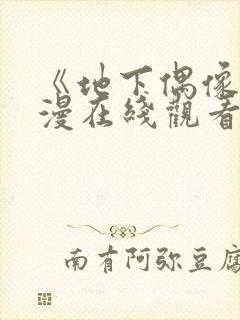 《地下偶像
漫在线觀看
南有阿弥豆腐